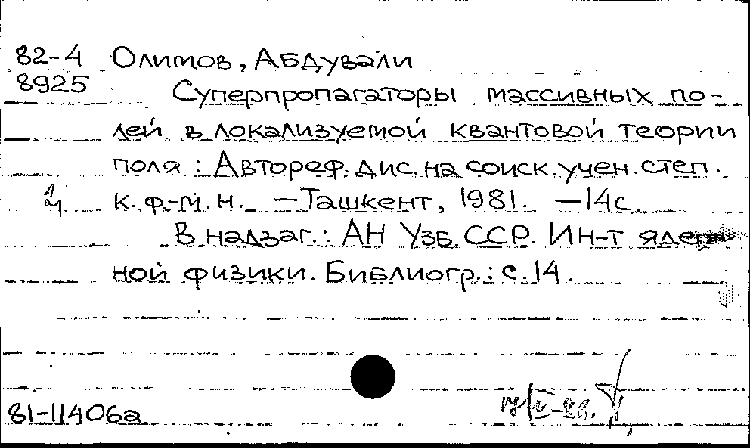 82-4 Олимов, Абдували
8925
Суперпропагаторы массивных по-
лей в локализуемой квантовой теории
поля : Автореф. дис. на соиск. учен. степ.
к. ф.-м. н. – Ташкент, 1981. – 14 с.
В надзаг.: АН УзССР. Ин-т ядер-
ной физики. Библиогр.: с. 14.
81-11406а